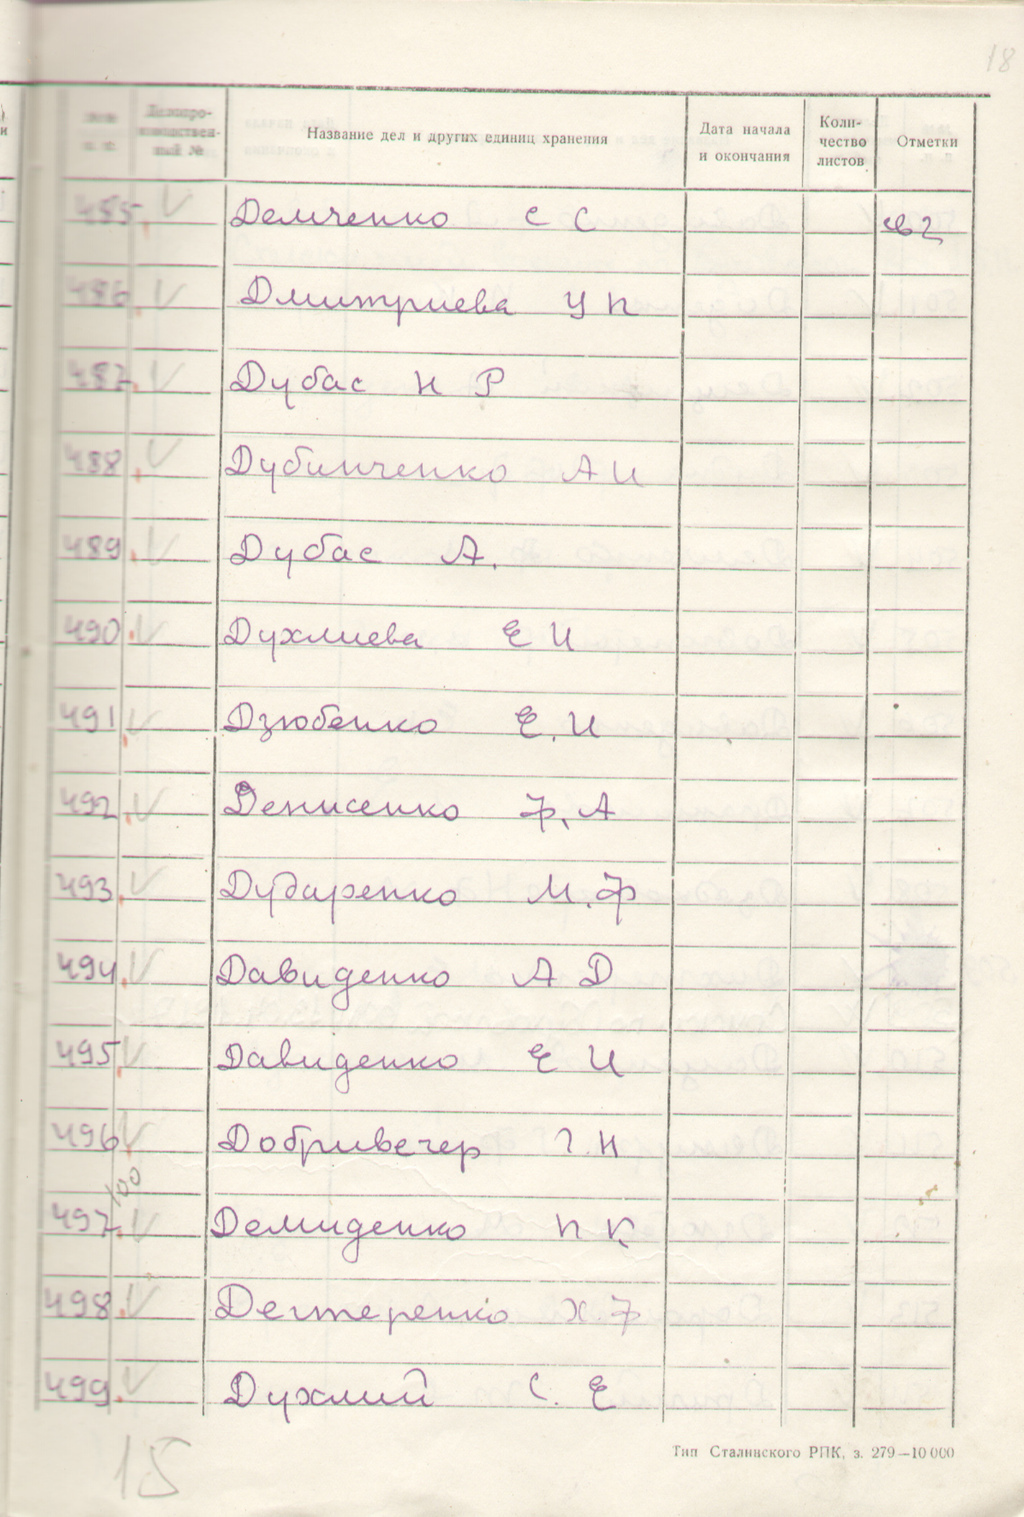 18
Делопро-
изводствен-
ный №
Название дел и других единиц хранения
Дата начала
и окончания
Коли-
чество
листов
Отметки
485. Демченко С С
486. Дмитриева У П
487. Дубас Н Р
488. Дубинченко А И
489. Дубас А.
490. Духлиева Е И
491. Дзюбенко Е. И
492. Денисенко Ф. А
493. Дударенко М. Ф
494. Давиденко А Д
495. Давиденко Е И
496. Добривечер Г. Н
100
497. Демиденко П К
498. Дегтеренко Х. Ф
499. Духлий С. Е
15
Тип Сталинского РПК, з. 279—10 000